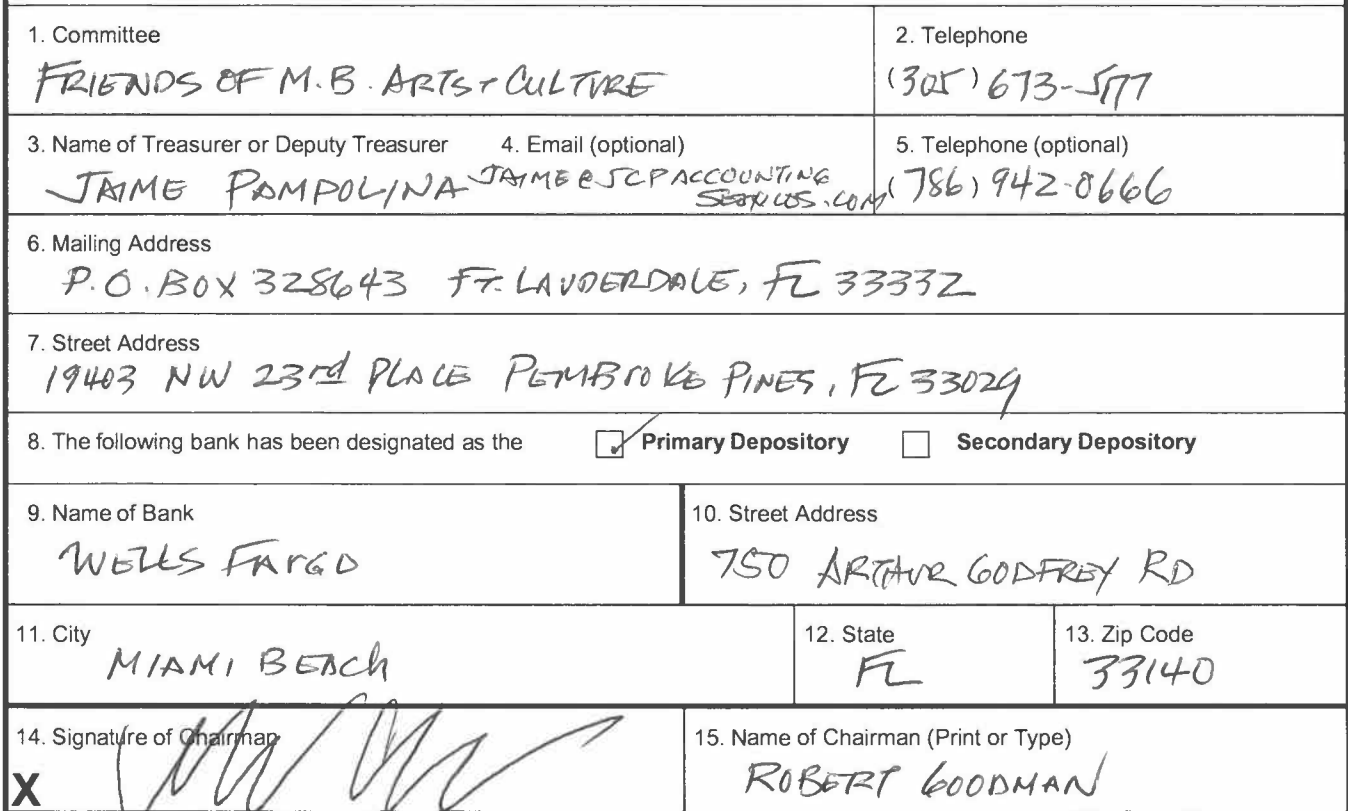 1. Committee
FRIENDS OF M.B. ARTS + CULTURE
2. Telephone
(305) 673-
3. Name of Treasurer or Deputy Treasurer
JAIME PAMPOLINA
4. Email (optional)
JAIME@JCPACCOUNTING
SERVICES.COM
5. Telephone (optional)
(786) 942-0666
6. Mailing Address
P.O. BOX 328643 FT. LAUDERDALE, FL 33332
7. Street Address
19403 NW 23rd PLACE PEMBROKE PINES, FL 33029
8. The following bank has been designated as the Primary Depository Secondary Depository
9. Name of Bank
WELLS FARGO
10. Street Address
750 ARTHUR GODFREY RD
11. City
MIAMI BEACH
12. State
FL
13. Zip Code
33140
14. Signature of Chairman
X
15. Name of Chairman (Print or Type)
ROBERT GOODMAN